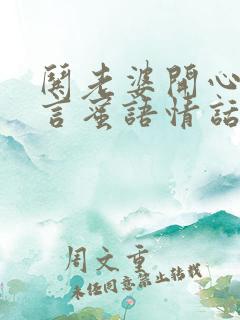 鬨老婆開心
言蜜語情話
周文重
未经同意禁止转载